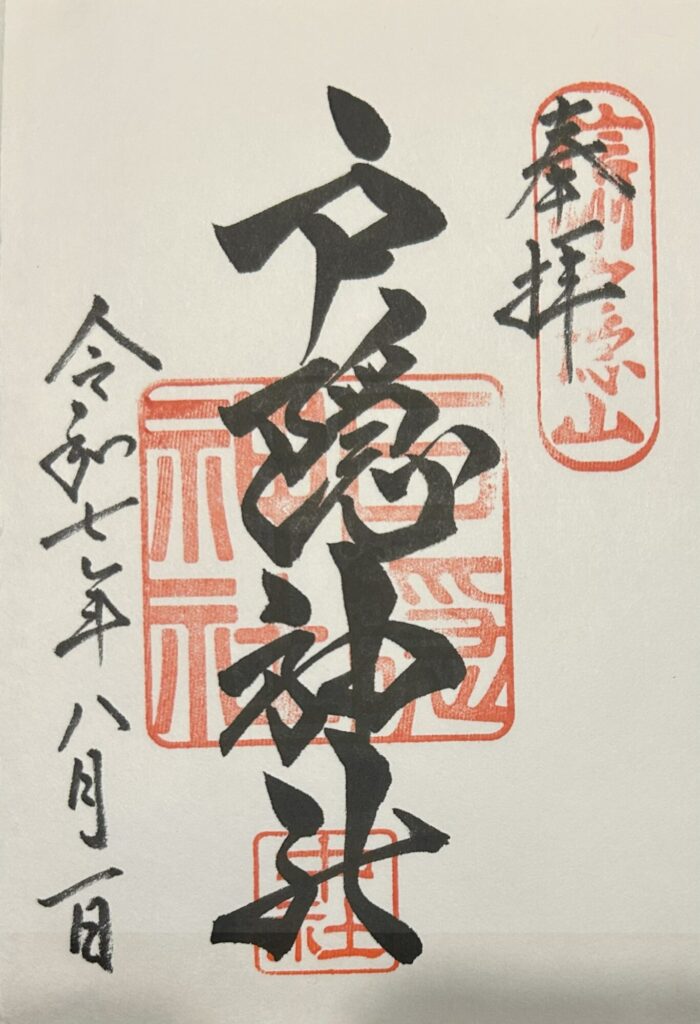 奉拝
信州戸隠山
戸隠神社
戸隠神社
中社
令和七年八月一日